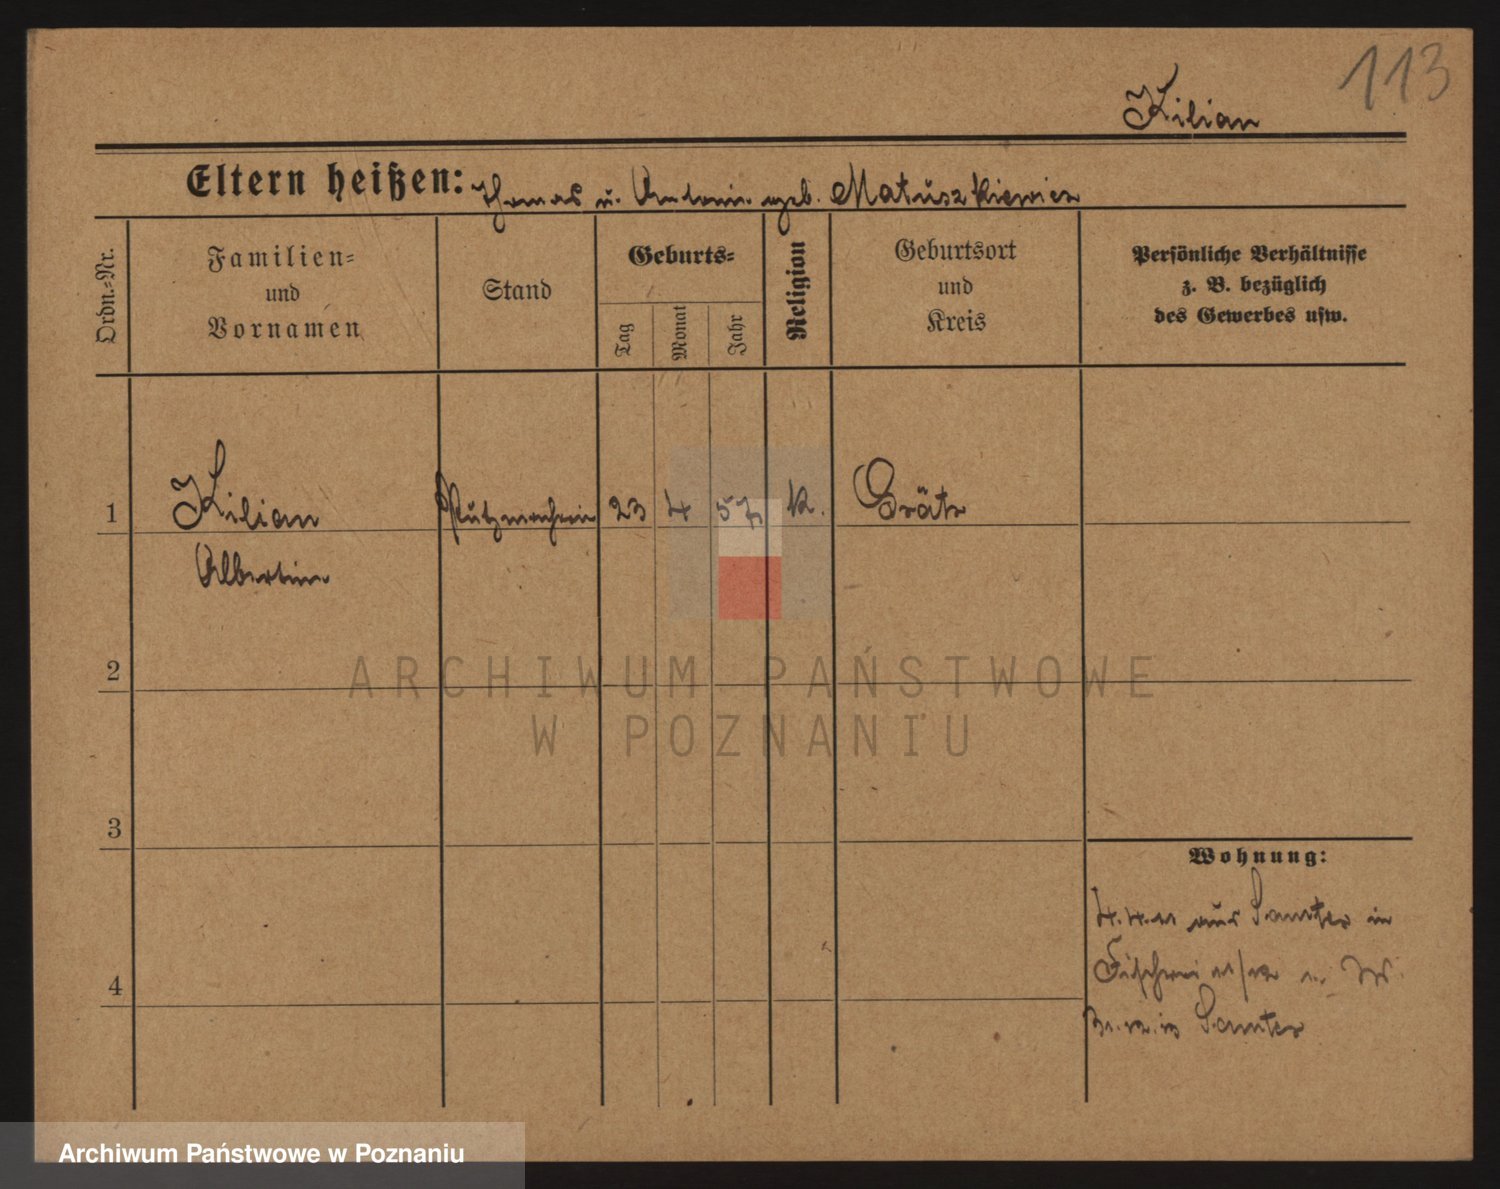 113
Kilian
Eltern heißen: Thomas u. Antonie geb. Matuszkiewicz
Ordn.-Nr.
Familien-
und
Vornamen
Stand
Geburts-
Tag
Monat
Jahr
Religion
Geburtsort
und
Kreis
Persönliche Verhältnisse
z. B. bezüglich
des Gewerbes usw.
1 Kilian Putzmacherin 23 4 57 k. Grätz
Albertine
2
3
4
Wohnung:
4.4.11 aus Samter in
Fischerei 11/12
Samter
ARCHIWUM PAŃSTWOWE
W POZNANIU
Archiwum Państwowe w Poznaniu